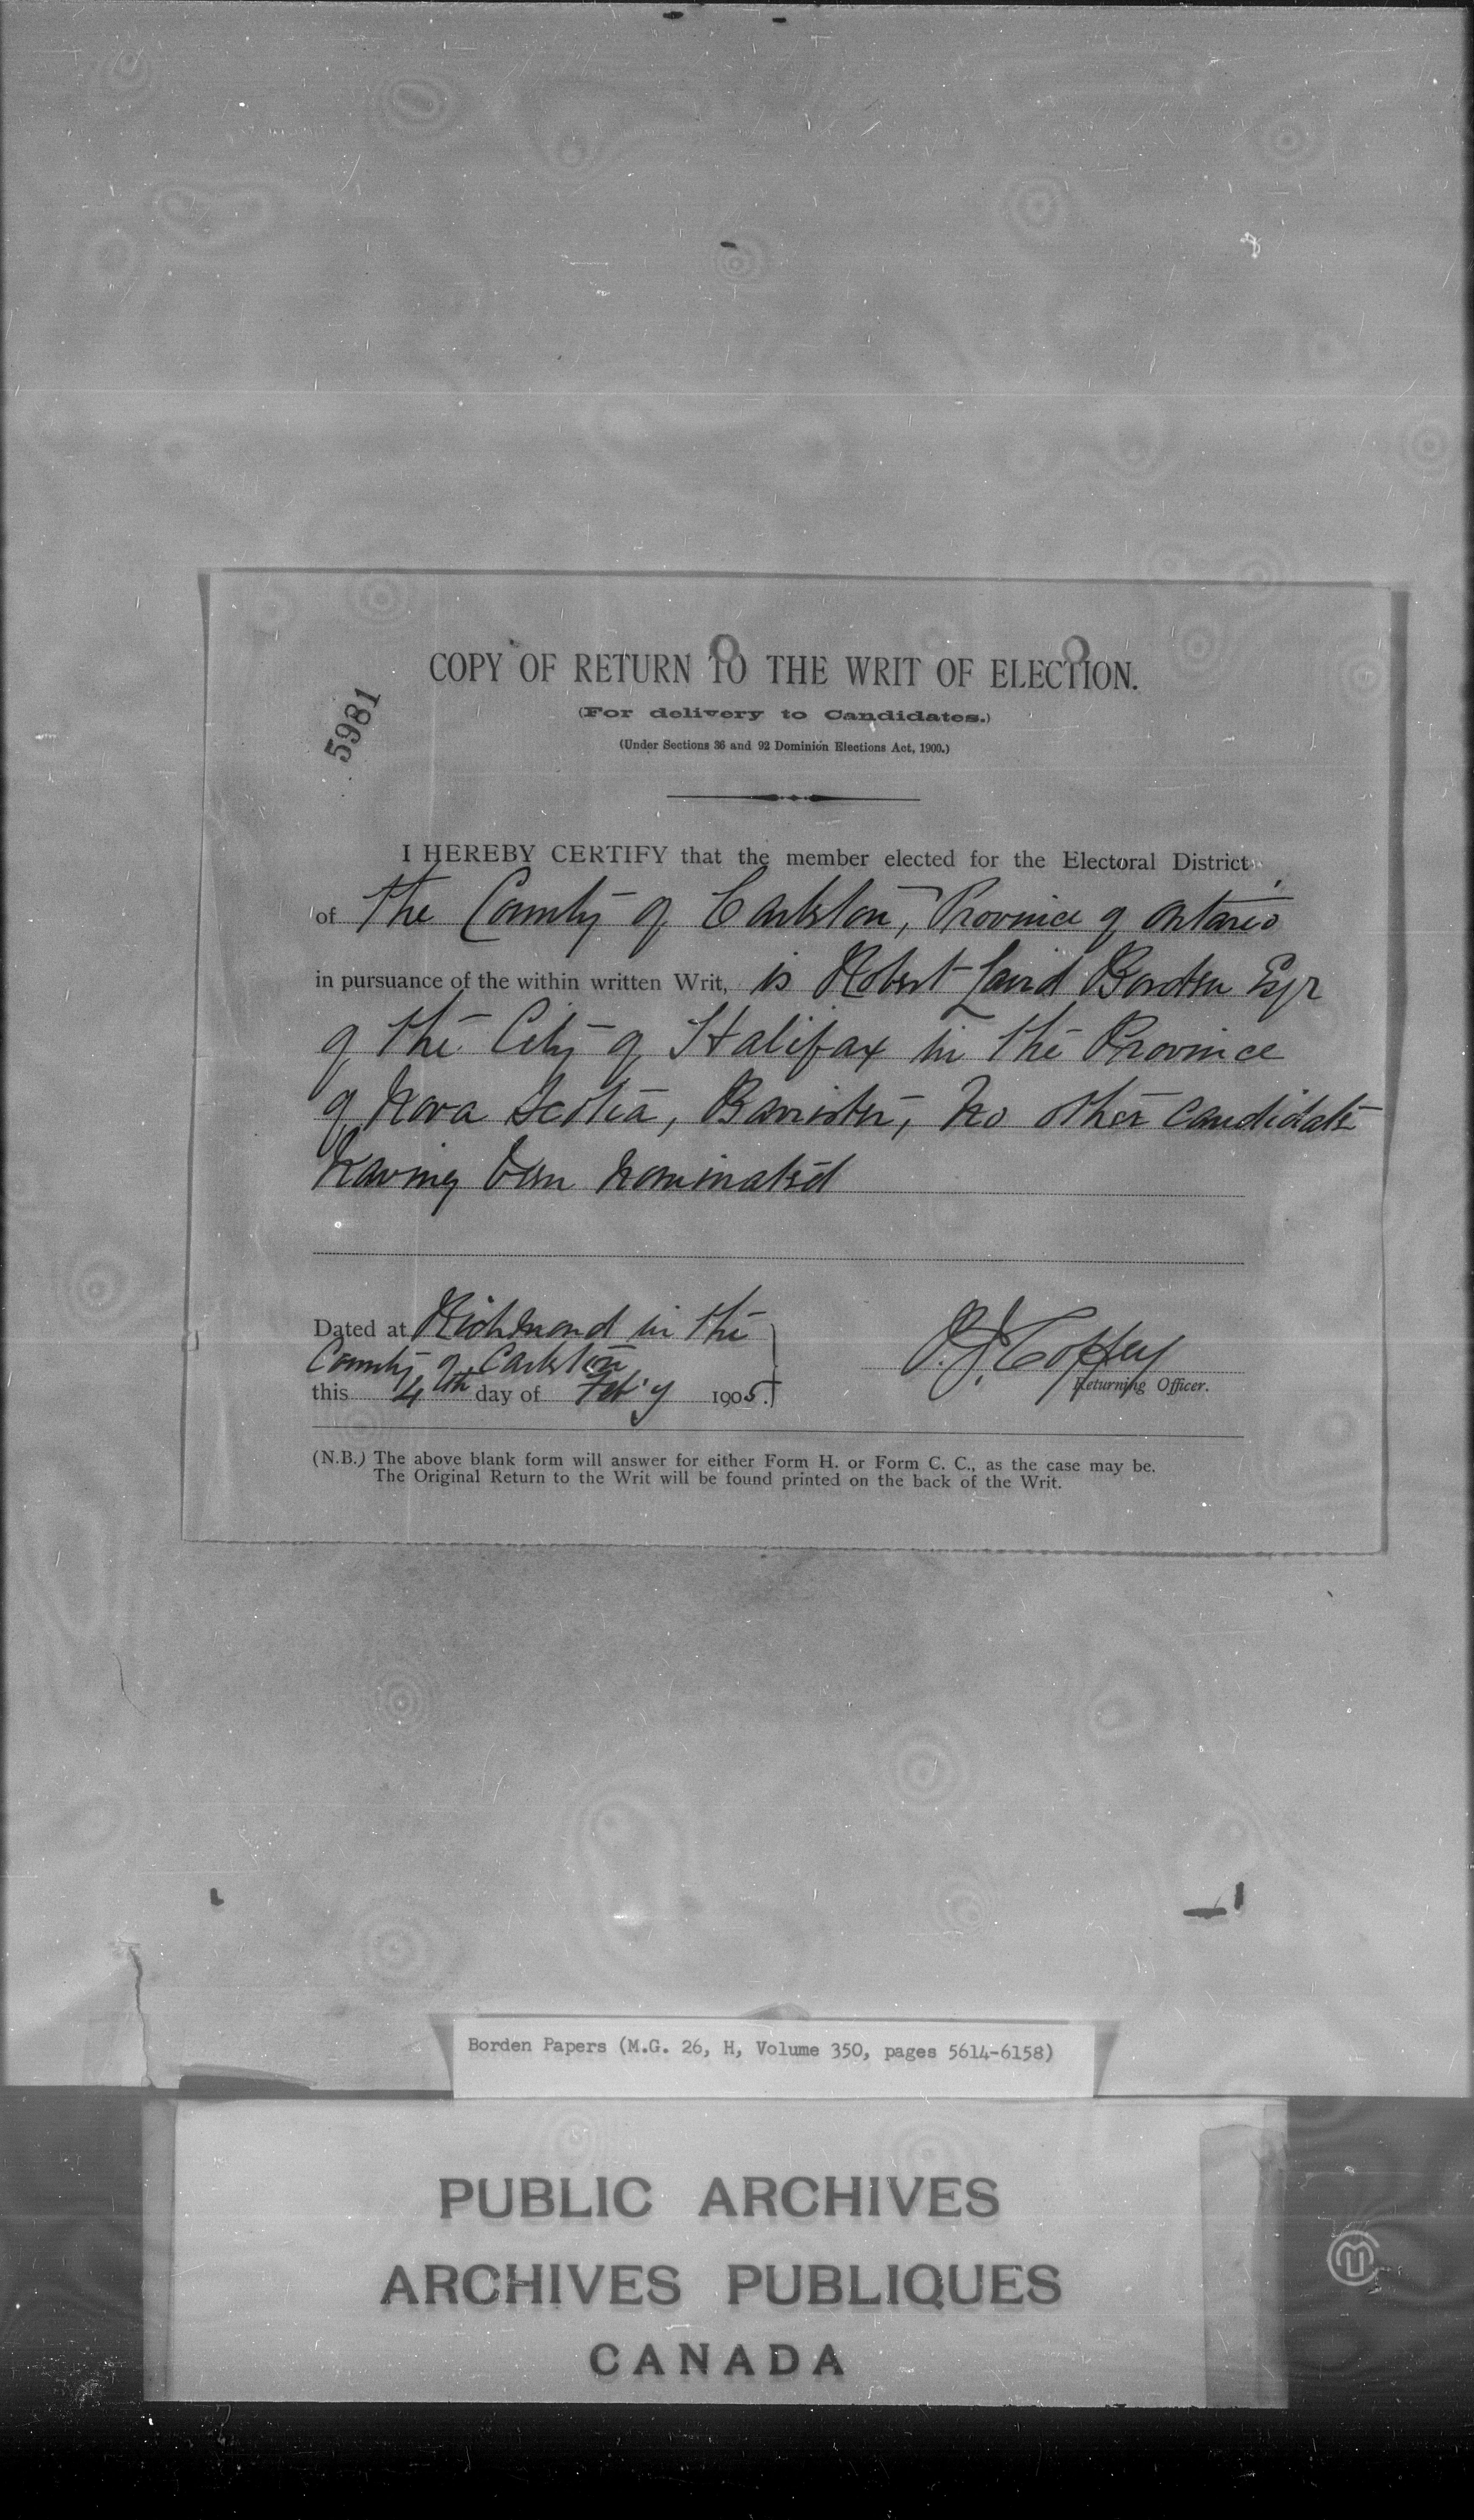 COPY OF RETURN TO THE WRIT OF ELECTION.
(For delivery to Candidates.)
(Under Sections 36 and 92 Dominion Elections Act, 1900.)
5981
I HEREBY CERTIFY that the member elected for the Electoral District
of the County of Carleton, Province of Ontario
in pursuance of the within written Writ, is Robert Laird Borden Esqr
of the City of Halifax in the Province
of Nova Scotia, Barrister, no other candidate
having been nominated
Dated at Richmond in the
County of Carleton
this 4th day of Feb'y 1905.
Coffey
Returning Officer.
(N.B.) The above blank form will answer for either Form H. or Form C. C., as the case may be.
The Original Return to the Writ will be found printed on the back of the Writ.
Borden Papers (M.G. 26, H, Volume 350, pages 5614-6158)
PUBLIC ARCHIVES
ARCHIVES PUBLIQUES
CANADA